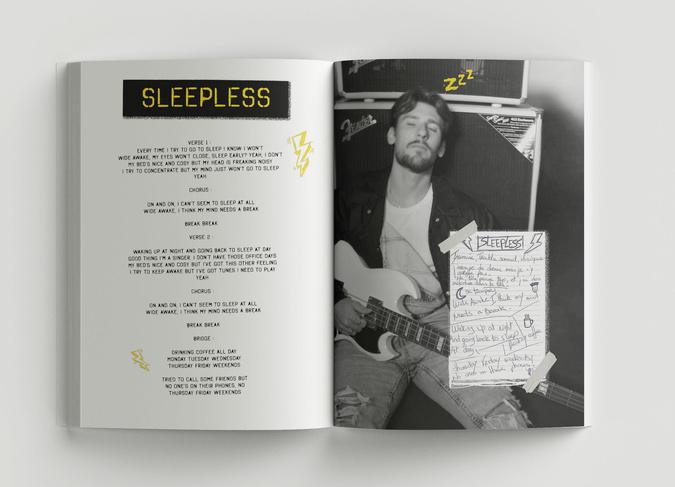 SLEEPLESS
VERSE 1 :
EVERY TIME I TRY TO GO TO SLEEP I KNOW I WON'T
WIDE AWAKE, MY EYES WON'T CLOSE, SLEEP EARLY? YEAH, I DON'T
MY BED'S NICE AND COSY BUT MY HEAD IS FREAKING NOISY
I TRY TO CONCENTRATE BUT MY MIND JUST WON'T GO TO SLEEP
YEAH
CHORUS :
ON AND ON, I CAN'T SEEM TO SLEEP AT ALL
WIDE AWAKE, I THINK MY MIND NEEDS A BREAK
BREAK BREAK
VERSE 2 :
WAKING UP AT NIGHT AND GOING BACK TO SLEEP AT DAY
GOOD THING I'M A SINGER, I DON'T HAVE THOSE OFFICE DAYS
MY BED'S NICE AND COSY BUT I'VE GOT THIS OTHER FEELING
I TRY TO KEEP AWAKE BUT I'VE GOT TUNES I NEED TO PLAY
YEAH
CHORUS :
ON AND ON, I CAN'T SEEM TO SLEEP AT ALL
WIDE AWAKE, I THINK MY MIND NEEDS A BREAK
BREAK BREAK
BRIDGE :
DRINKING COFFEE ALL DAY
MONDAY TUESDAY WEDNESDAY
THURSDAY FRIDAY WEEKENDS
TRIED TO CALL SOME FRIENDS BUT
NO ONE'S ON THEIR PHONES, NO
THURSDAY FRIDAY WEEKENDS
zzz
Fender
SLEEPLESS
Wide Awake I think my mind
needs a Break
Waking up at night
And going back to sleep
At day